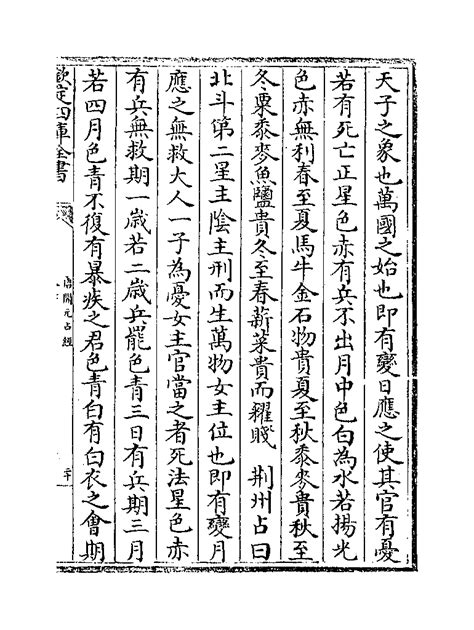 天子之象也萬國之始也即有變日應之使其官有憂
若有死亡正星色赤有兵不出月中色白為水若揚光
色赤無利春至夏馬牛金石物貴夏至秋黍麥貴秋至
冬粟黍麥魚鹽貴冬至春薪菜貴而糴賤　荆州占曰
北斗第二星主陰主刑而生萬物女主位也即有變月
應之無救大人一子為憂女主官當之者死法星色赤
有兵無救期一歲若二歲兵罷色青三日有兵期三月
若四月色青不復有暴疾之君色青白有白衣之會期
欽定四庫全書
唐開元占經